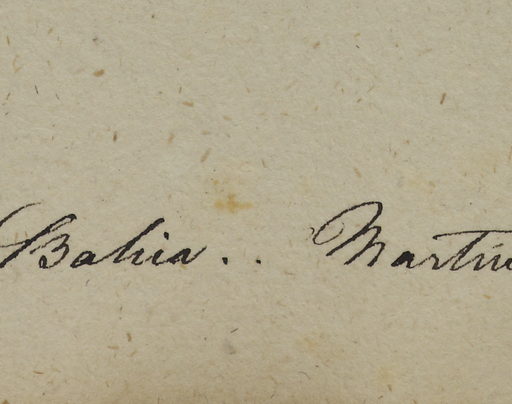 Bahia.. Martiu